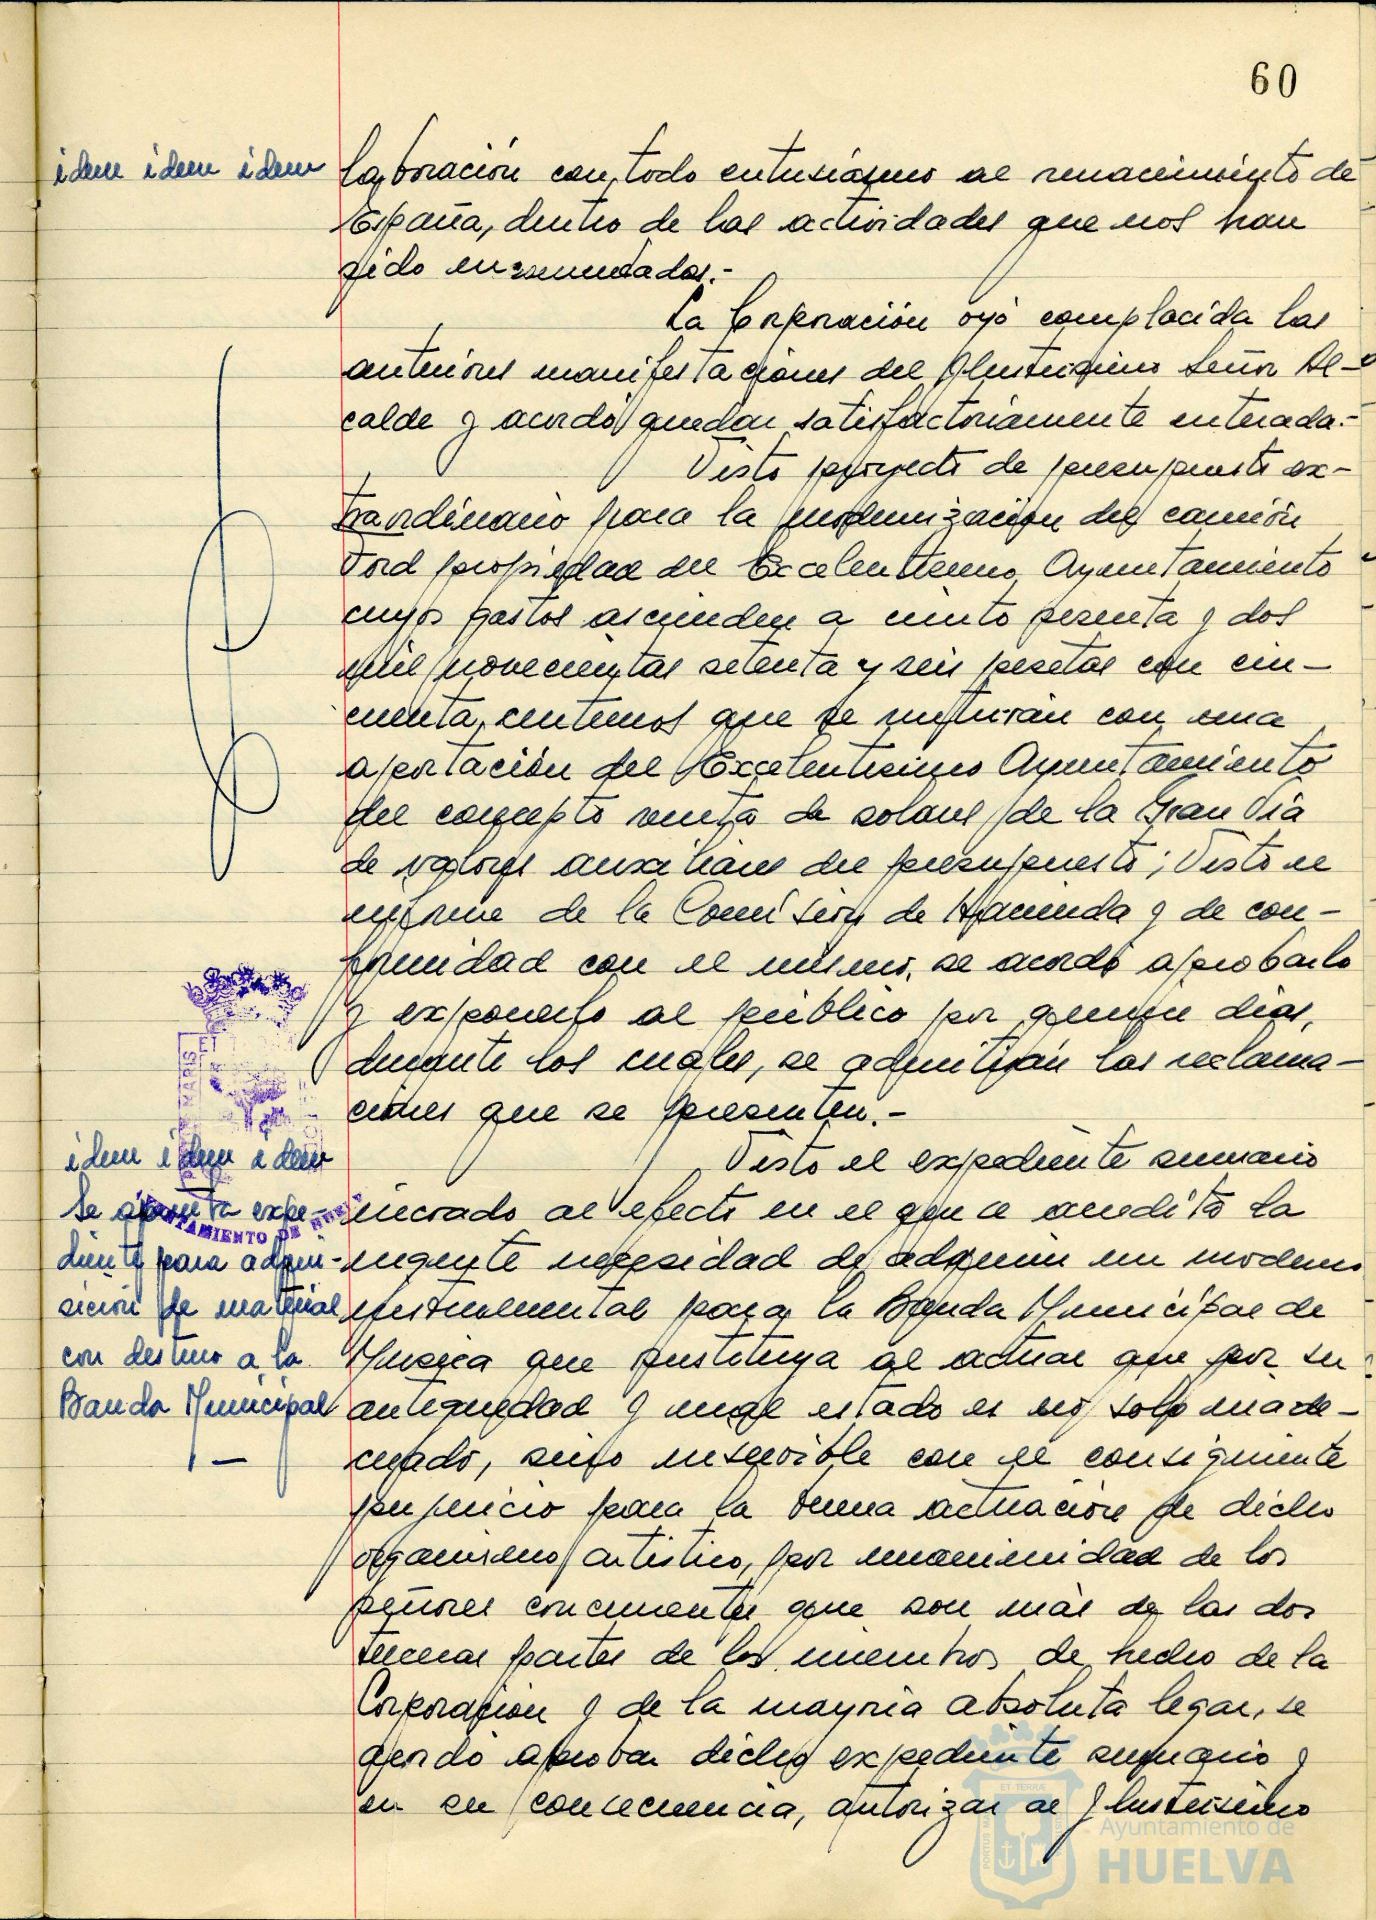 60
idem idem idem
laboración con todo entusiásmo al renacimiento de
España, dentro de las actividades que nos han
sido encomendadas.-
La Corporación oyó complacida las
anteriores manifestaciones del Ilustrisimo Señor Al-
calde y acordó quedar satisfactoriamente enterada.-
Visto proyecto de presupuesto ex-
traordinario para la modernización del camión
Ford propiedad del Excelentisimo Ayuntamiento
cuyos gastos ascienden a ciento sesenta y dos
mil novecientas setenta y seis pesetas con cin-
cuenta centimos que se nutrirán con una
aportación del Excelentisimo Ayuntamiento
del concepto venta de solares de la Gran Via
de valores auxiliares del presupuesto; Visto el
informe de la Comisión de Hacienda y de con-
formidad con el mismo, se acordó aprobarlo
y exponerlo al público por quince dias,
durante los cuales, se admitirán las reclama-
ciones que se presenten.-
idem idem idem
Se aprueba expe-
diente para adqui-
sición de material
con destino a la
Banda Municipal
Visto el expediente sumario
incoado al efecto en el que se acredita la
urgente necesidad de adquirir un moderno
instrumental para la Banda Municipal de
Musica que sustituya al actual que por su
antiguedad y mal estado es no solo inade-
cuado, sino inservible con el consiguiente
perjuicio para la buena actuación de dicho
organismo artistico, por unanimidad de los
señores concurrentes que son más de las dos
terceras partes de los miembros de hecho de la
Corporación y de la mayoria absoluta legal, se
acordó aprobar dicho expediente sumario y
en su consecuencia, autorizar al Ilustrisimo
PORTUS MARIS
ET TERRÆ
AYUNTAMIENTO DE HUELVA
Ayuntamiento de
HUELVA